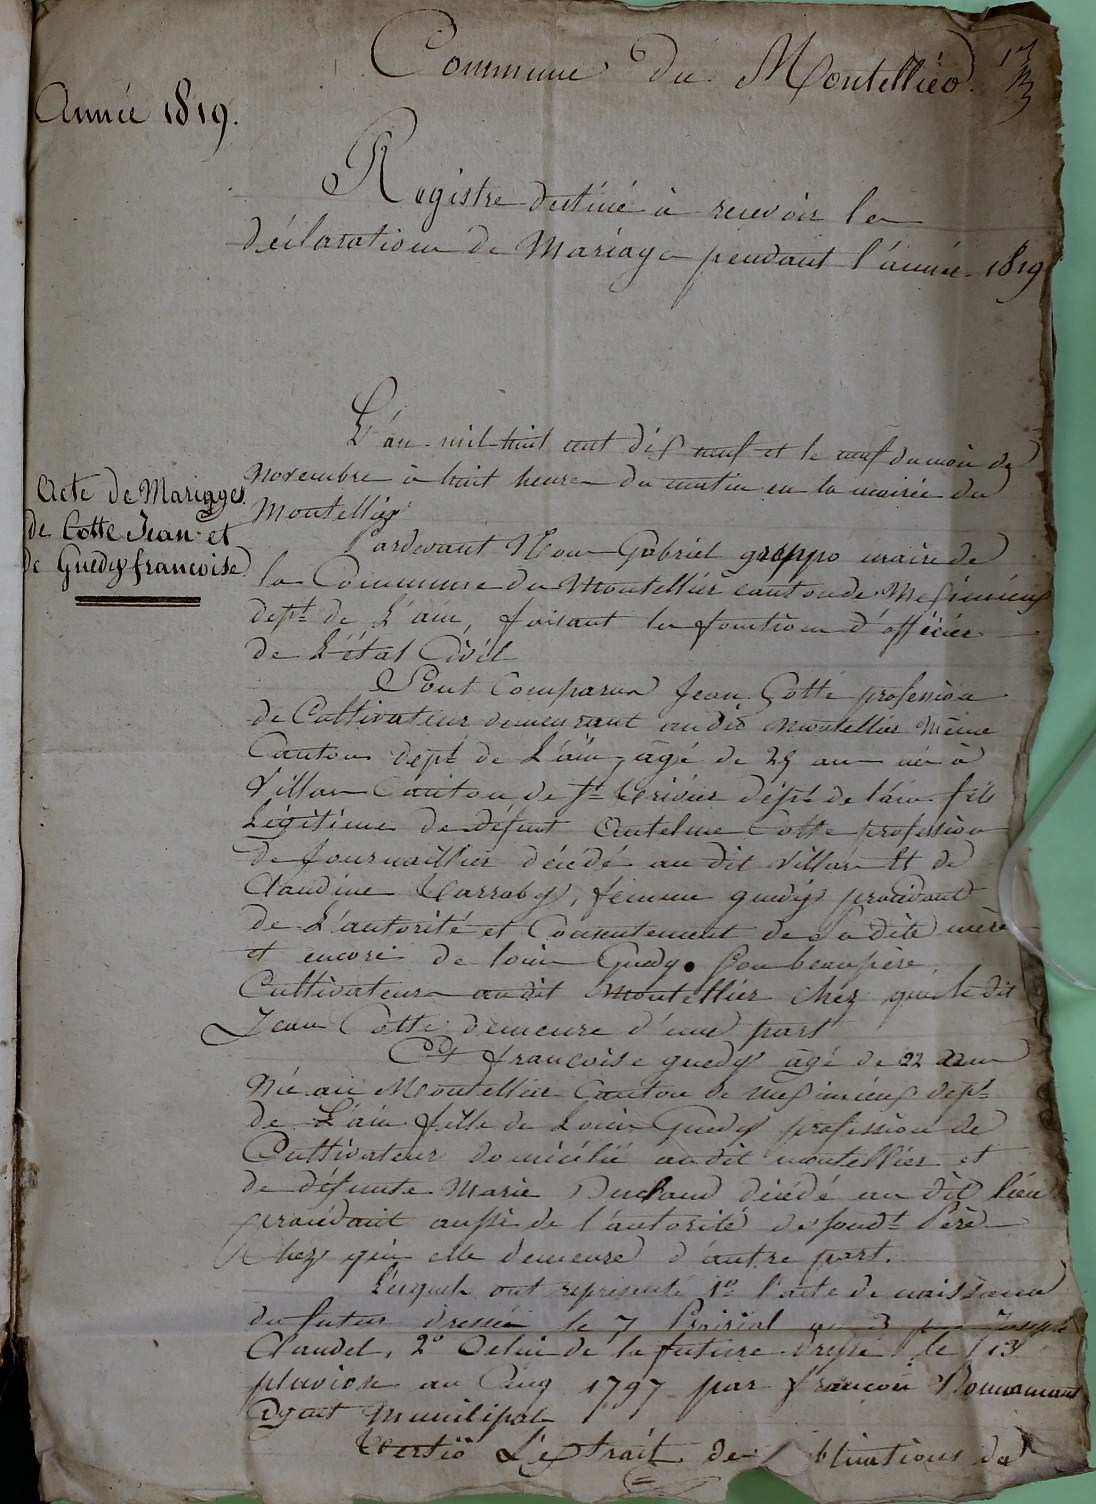 Commune du Montellier
Année 1819.
Registre destiné à recevoir les
déclarations de Mariage pendant l'année 1819
L'an mil huit cent dix neuf et le neuf du mois de
Novembre à huit heures du matin en la mairie du
Montellier
Acte de Mariages
de Cotte Jean et
de Guedy francoise
Pardevant Nous Gabriel greppo maire de
la Commune du Montellier canton de Meximieux
dept. de L'ain, faisant les fonctions d'officier
de L'état Civil
Sont Comparus Jean Cotte profession
de Cultivateur demeurant audit Montellier même
Canton dept. de L'ain, agé de 25 ans né à
Villars Canton de St. Trivier dept. de l'ain fils
Légitime de défunt Antelme Cotte profession
de Journaillier décédé au dit Villars Et de
Claudine femme guedy procédant
de L'autorité et Consentement de Sa dite mère
et encore de Louis Guedy. Son beaupère
Cultivateur audit Montellier chez qui le dit
Jean Cotte demeure d'une part
Et francoise guedy agé de 22 ans
Née au Montellier Canton de meximieux dept.
de L'ain fille de Louis Guedy profession de
Cultivateur domicilié audit montellier et
de défunte Marie décédé au dit lieu
procédant aussi de l'autorité de sond. Père
Chez qui elle demeure d'autre part.
Lesquels ont représenté 1o. l'acte de naissance
du futur dressé le 7 Prairial an 3 par Joseph
Claudel, 2o Celui de la future dressé le 13
pluviose an Cinq 1797 par francois
Agent Municipal
Tertiò L'extrait des publications de